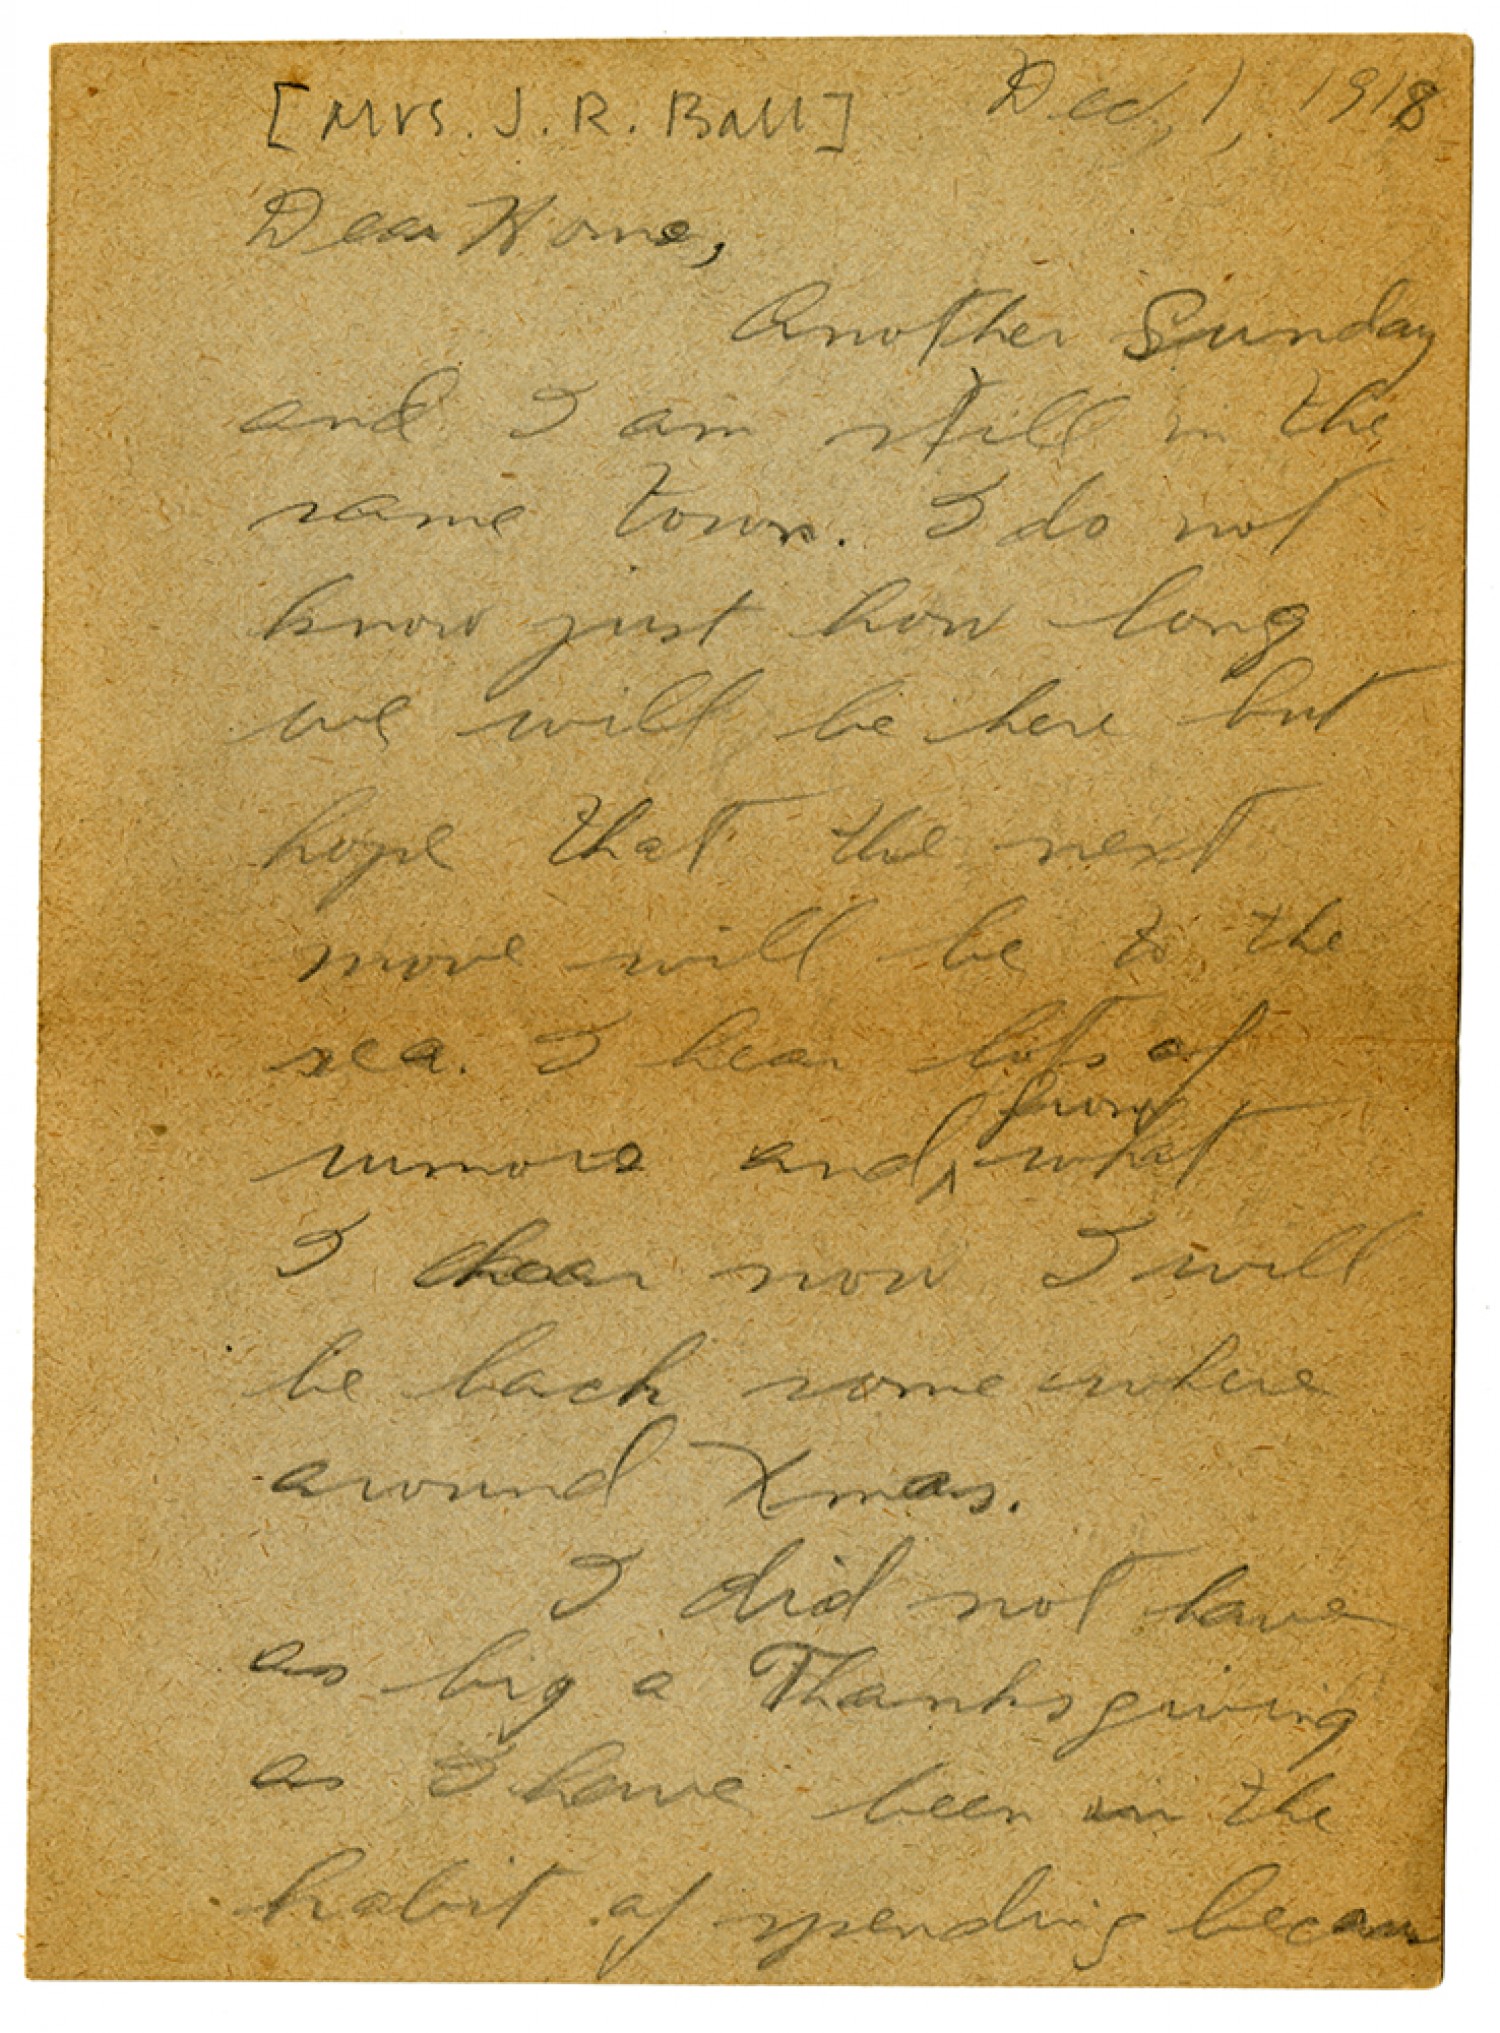 [Mrs. J. R. Ball] Dec, 1, 1918
Dear Home,
Another Sunday
and I am still in the
same town. I do not
know just how long
we will be here but
hope that the next
move will be to the
sea. I hear lots of
from
rumors and, ^ what
I hear now I will
be back somewhere
around Xmas.
I did not have
as big a Thanksgiving
as I have been in the
habit of spending becaus